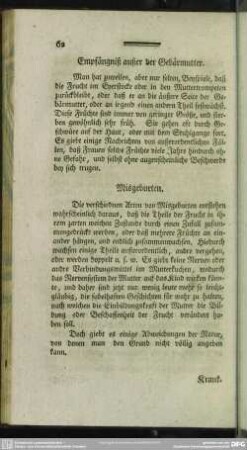 62
Empfängniß außer der Gebärmutter.
Man hat zuweilen, aber nur selten, Beyspiele, daß
die Frucht im Eyerstocke oder in den Muttertrompeten
zurückbleibt, oder daß er an die äußere Seite der Ge-
bärmutter, oder an irgend einen andern Theil festwächst.
Diese Früchte sind immer von geringer Größe, und ster-
ben gewöhnlich sehr früh. Sie gehen oft durch Ge-
schwüre auf der Haut, oder mit dem Stuhlgange fort.
Es giebt einige Nachrichten von außerordentlichen Fäl-
len, daß Frauen solche Früchte viele Jahre hindurch oh-
ne Gefahr, und selbst ohne augenscheinliche Beschwerde
bey sich trugen.
Misgeburten.
Die verschiedenen Arten von Misgeburten entstehen
wahrscheinlich daraus, daß die Theile der Frucht in ih-
rem zarten weichen Zustande durch einen Zufall zusam-
mengedrückt werden, oder daß mehrere Früchte an ein-
ander hängen, und endlich zusammenwachsen. Hiedurch
wachsen einige Theile widernatürlich, andre vergehen,
oder werden doppelt u. s. w. Es giebt keine Nerven oder
andre Verbindungsmittel im Mutterkuchen, wodurch
das Nervensystem der Mutter auf das Kind wirken könn-
te, und daher sind jetzt nur wenig Leute mehr so leicht-
gläubig, die fabelhaften Geschichten für wahr zu halten,
nach welchen die Einbildungskraft der Mutter die Bil-
dung oder Beschaffenheit der Frucht verändert ha-
ben soll.
Doch giebt es einige Abweichungen der Natur,
von denen man den Grund nicht völlig angeben
kann.
Krank.